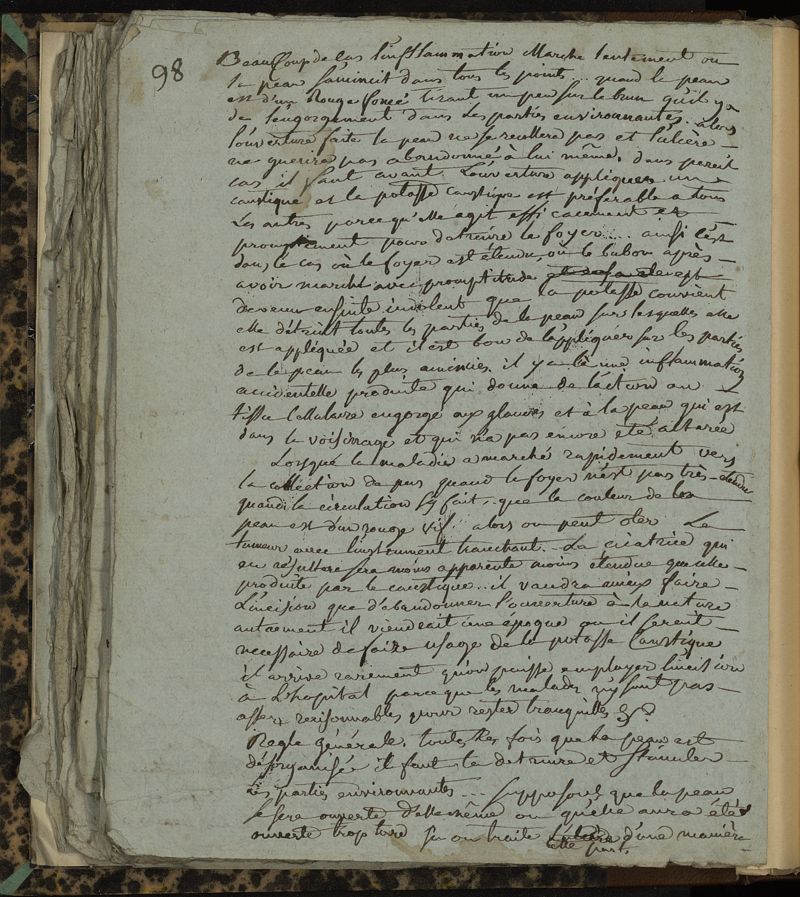 98
Beaucoup de cas l'inflammation marche lentement ou
la peau s'amincit dans tous les points... quand la peau
est d'un Rouge foncé tirant un peu sur le brun qu'il y a
de l'engorgement dans les parties environnantes. alors
l'ouverture faite la peau ne se recollera pas et l'ulcère
ne guerira pas abandonné à lui même. dans pareil
cas il faut avant l'ouverture appliquer un
caustique et la potasse caustique est préférable a tous
Les autres parce qu'elle agit efficacement et
promptement pour detruire le foyer.... ainsi c'est
dans le cas où le foyer est étendu, où le bubon après
avoir marché avec promptitude est
devenu ensuite indolent que la potasse convient
elle détruit toutes les parties de la peau sur lesquelles elle
est appliquée et il est bon de l'appliquer sur les parties
de la peau les plus amincies. il y a là une inflammation
accidentelle produite qui donne de l'action au
tissu Cellulaire engorgé aux glandes et à la peau qui est
dans le voisinage et qui n'a pas encore été altérée
Lorsque la maladie a marché rapidement vers
la collection de pus quand le foyer n'est pas très-étendu
quand la circulation s'y fait, que la couleur de la
peau est d'un rouge vif. alors on peut oter La
tumeur avec l'instrument tranchant. La cicatrice qui
en résultera sera moins apparente moins étendue que celle
produite par le caustique.. il vaudra mieux faire
L'incision que d'abandonner l'ouverture à la nature
autrement il viendrait une époque ou il serait
necessaire de faire usage de la potasse Caustique
il arrive rarement qu'on puisse employer l'incision
à L'hopital parce que les malades n'y sont pas
assez raisonnables pour rester tranquilles
Regle générale. toutes les fois que la peau est
désorganisée il faut la detruire et stimuler
Les parties environnantes... supposons que la peau
se sera ouverte d'elle même ou qu'elle aura été
ouverte trop tard si on traite d'une manière